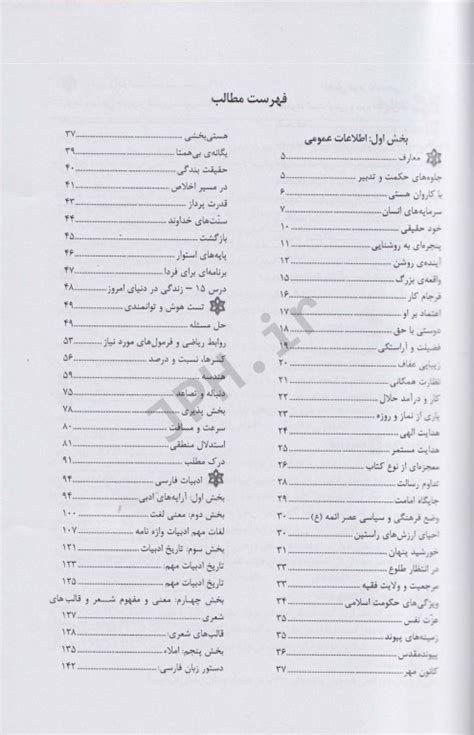 فهرست مطالب
بخش اول: اطلاعات عمومی
معارف ۵
جلوه‌های حکمت و تدبیر ۵
با کاروان هستی ۶
سرمایه‌های انسان ۷
خود حقیقی ۱۰
پنجره‌ای به روشنایی ۱۱
آینده‌ی روشن ۱۲
واقعه‌ی بزرگ ۱۵
فرجام کار ۱۶
اعتماد بر او ۱۷
دوستی با حق ۱۸
فضیلت و آراستگی ۱۹
زیبایی عفاف ۲۰
نظارت همگانی ۲۱
کار و درآمد حلال ۲۲
یاری از نماز و روزه ۲۳
هدایت الهی ۲۴
هدایت مستمر ۲۵
معجزه‌ای از نوع کتاب ۲۶
تداوم رسالت ۲۸
جایگاه امامت ۲۹
وضع فرهنگی و سیاسی عصر ائمه (ع) ۳۰
احیای ارزش‌های راستین ۳۰
خورشید پنهان ۳۱
در انتظار طلوع ۳۳
مرجعیت و ولایت فقیه ۳۳
ویژگی‌های حکومت اسلامی ۳۴
عزّت نفس ۳۵
زمینه‌های پیوند ۳۵
پیوندمقدس ۳۶
کانون مهر ۳۷
هستی‌بخشی ۳۷
یگانه‌ی بی‌همتا ۳۹
حقیقت بندگی ۴۰
در مسیر اخلاص ۴۱
قدرت پرداز ۴۳
سنّت‌های خداوند ۴۴
بازگشت ۴۵
پایه‌های استوار ۴۶
برنامه‌ای برای فردا ۴۷
درس ۱۵ – زندگی در دنیای امروز ۴۸
تست هوش و توانمندی ۴۹
حل مسئله ۴۹
روابط ریاضی و فرمول‌های مورد نیاز ۵۳
کسرها، نسبت و درصد ۵۶
هندسه ۵۹
دنباله و تصاعد ۷۵
بخش پذیری ۷۸
سرعت و مسافت ۸۰
استدلال منطقی ۸۱
درک مطلب ۹۱
ادبیات فارسی ۹۴
بخش اول: آرایه‌های ادبی ۹۴
بخش دوم: معنی لغت ۱۰۰
لغات مهم ادبیات واژه نامه ۱۰۷
بخش سوم: تاریخ ادبیات ۱۲۱
تاریخ ادبیات مهم: ۱۲۳
تاریخ ادبیات مهم: ۱۲۵
بخش چهارم: معنی و مفهوم شعر و قالب‌های
شعری ۱۲۷
قالب‌های شعری: ۱۲۸
بخش پنجم: املاء ۱۳۵
دستور زبان فارسی: ۱۴۲
JPH.ir